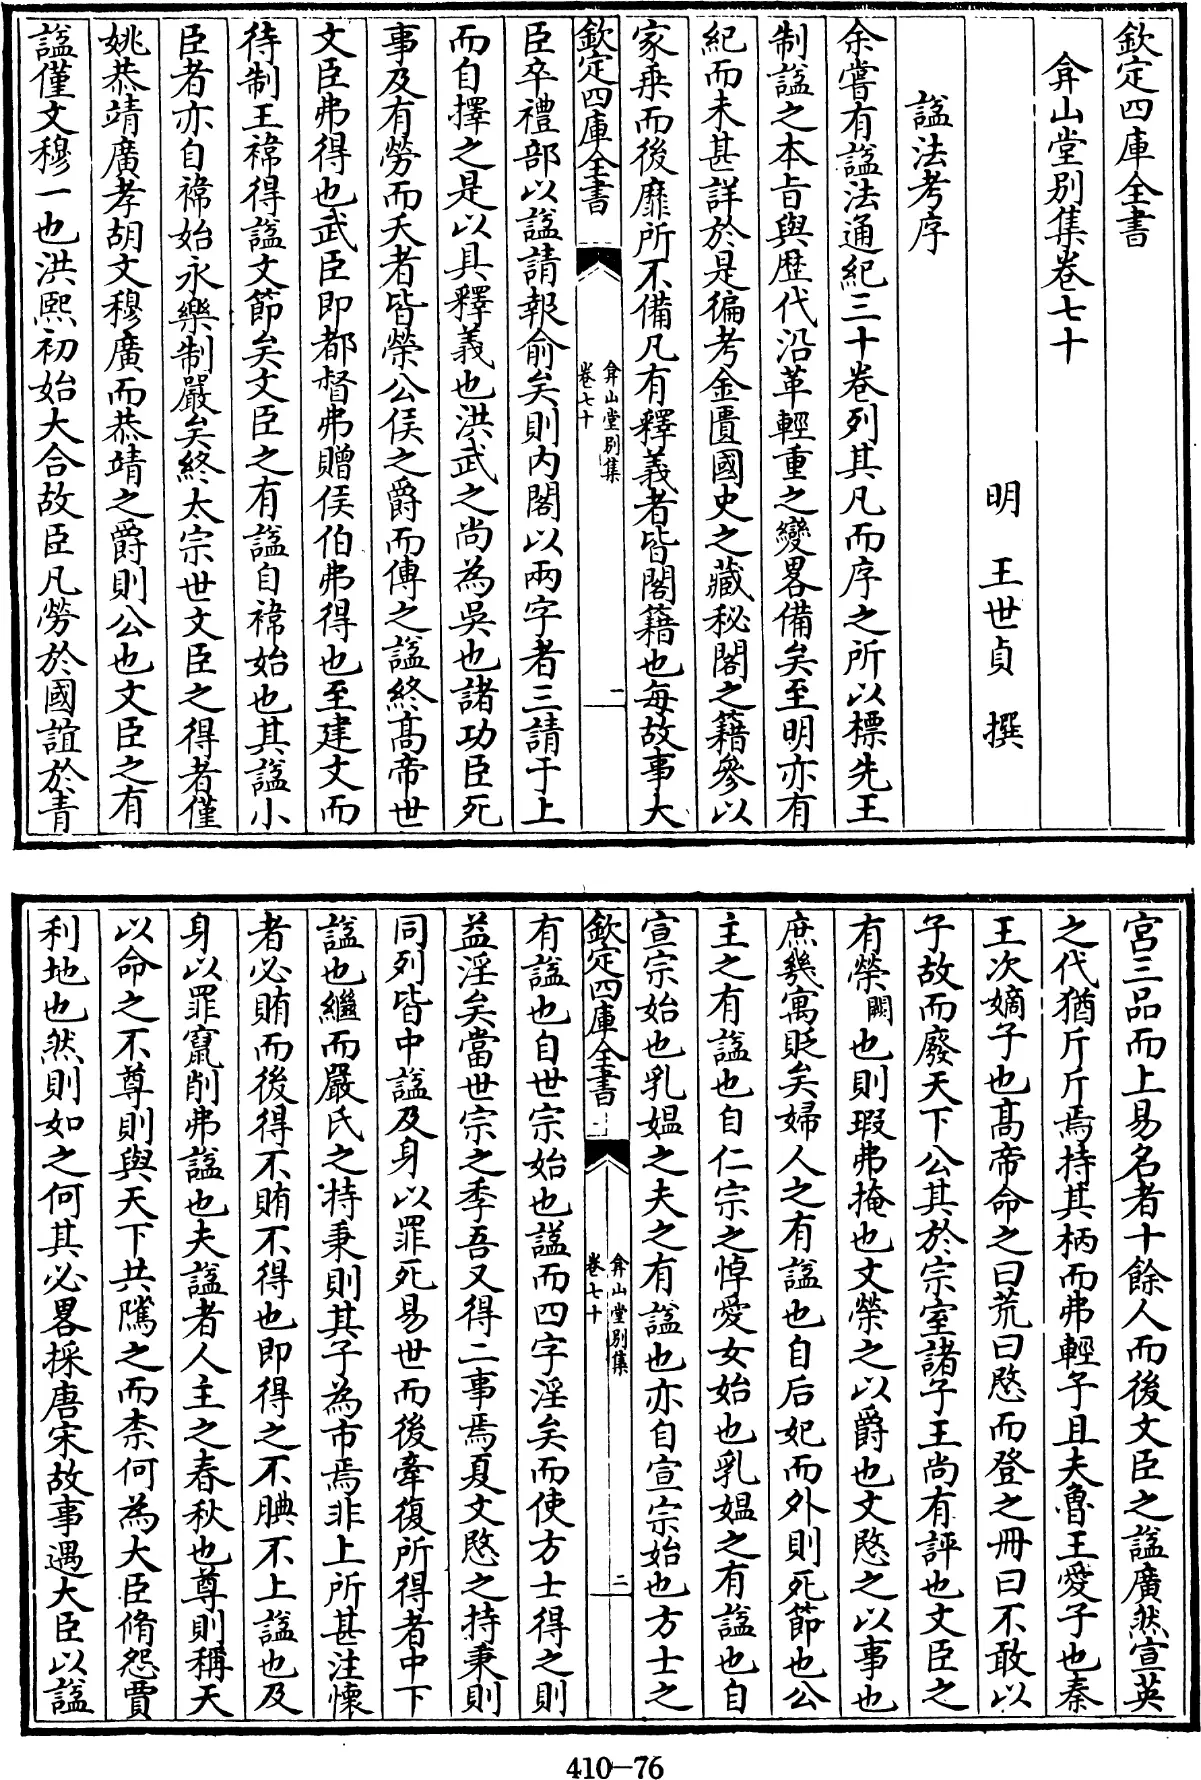 欽定四庫全書
弇山堂別集卷七十
明 王世貞 撰
諡法考序
余嘗有諡法通紀三十卷列其凡而序之所以標先王
制諡之本旨與歴代沿革輕重之變畧備矣至明亦有
紀而未甚詳於是徧考金匱國史之藏秘閣之籍參以
家乗而後靡所不備凡有釋義者皆閣籍也每故事大
欽定四庫全書
弇山堂別集
卷七十
一
臣卒禮部以諡請報俞矣則内閣以兩字者三請于上
而自擇之是以具釋義也洪武之尚為吳也諸功臣死
事及有勞而夭者皆榮公侯之爵而傳之諡終髙帝世
文臣弗得也武臣即都督弗贈侯伯弗得也至建文而
待制王褘得諡文節矣文臣之有諡自褘始也其諡小
臣者亦自褘始永樂制嚴矣終太宗世文臣之得者僅
姚恭靖廣孝胡文穆廣而恭靖之爵則公也文臣之有
諡僅文穆一也洪熙初始大合故臣凡勞於國誼於青
宫三品而上易名者十餘人而後文臣之諡廣然宣英
之代猶斤斤焉持其柄而弗輕予且夫魯王愛子也秦
王次嫡子也髙帝命之曰荒曰愍而登之冊曰不敢以
子故而廢天下公其於宗室諸子王尚有評也文臣之
有榮闕也則瑕弗掩也文榮之以爵也文愍之以事也
庶幾寓貶矣婦人之有諡也自后妃而外則死節也公
主之有諡也自仁宗之悼愛女始也乳媼之有諡也自
宣宗始也乳媼之夫之有諡也亦自宣宗始也方士之
欽定四庫全書
弇山堂別集
卷七十
二
有諡也自世宗始也諡而四字淫矣而使方士得之則
益淫矣當世宗之季吾又得二事焉夏文愍之持秉則
同列皆中諡及身以罪死易世而後牽復所得者中下
諡也繼而嚴氏之持秉則其子為市焉非上所甚注懷
者必賄而後得不賄不得也即得之不腆不上諡也及
身以罪竄削弗諡也夫諡者人主之春秋也尊則稱天
以命之不尊則與天下共隲之而柰何為大臣脩怨賈
利地也然則如之何其必畧採唐宋故事遇大臣以諡
410—76